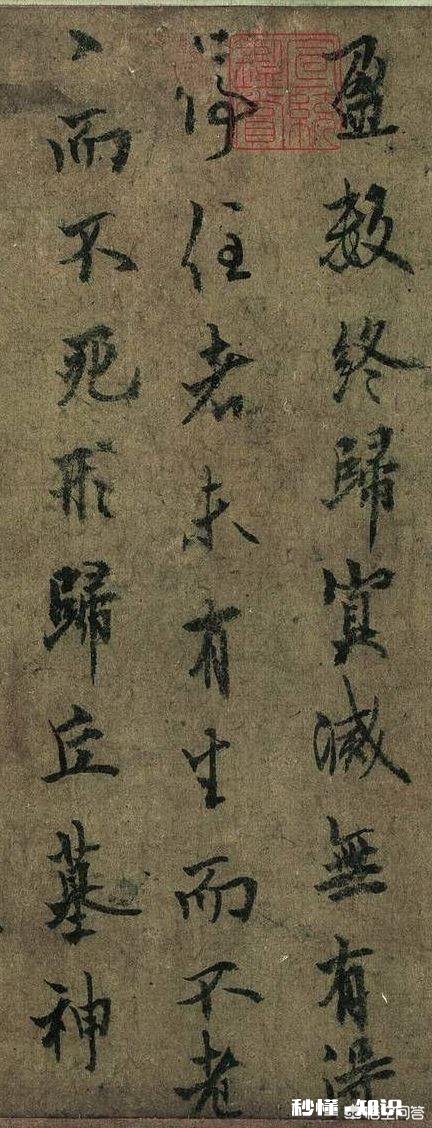 盈數終歸冥滅無有得
停住者未有生而不老
〻而不死形歸丘墓神
秒懂·知识
悟空问答